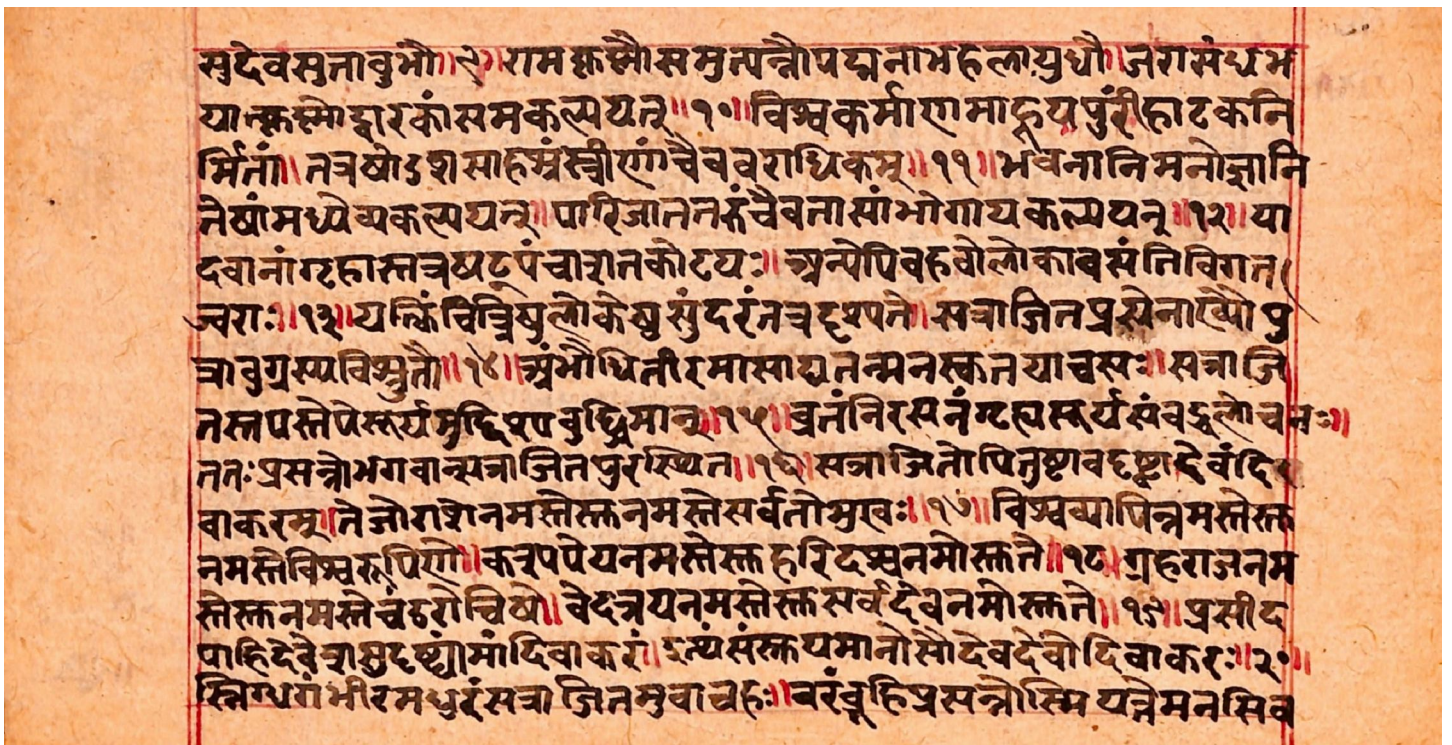 सुदेवसुतावुभौ॥९॥रामकृष्णौसमुत्पन्नौपद्मनाभहलायुधौ॥जरासंधभ
यात्कृष्णोद्वारकांसमकल्पयत्॥१०॥विश्वकर्माणमाहूयपुरींहाटकनि
र्मितां॥तत्रषोडशसाहस्रंस्त्रीणांचैववराधिकम्॥११॥भवनानिमनोज्ञानि
तेषांमध्येव्यकल्पयत्॥पारिजाततरुंचैवतासांभोगायकल्पयत्॥१२॥या
दवानांगृहास्तत्रषट्पंचाशतकोटयः॥अन्येपिबहवोलोकावसंतिविगत
ज्वराः॥१३॥यत्किंचित्त्रिषुलोकेषुसुंदरंतत्रदृश्यते॥सत्राजितप्रसेनाख्यौपु
त्रावुग्रस्यविश्रुतौ॥१४॥अंभोधितीरमासाद्यतन्मनस्कतयाचसः॥सत्राजि
तस्तपस्तेपेसूर्यमुद्दिश्यबुद्धिमान्॥१५॥व्रतंनिरसनंगृह्यसूर्यसंबद्धलोचनः॥
ततःप्रसन्नोभगवान्सत्राजितपुरस्थित॥१६॥सत्राजितोपितुष्टावदृष्ट्वादेवंदि
वाकरम्॥तेजोराशेनमस्तेस्तुनमस्तेसर्वतोमुखः॥१७॥विश्वव्यापिन्नमस्तेस्तु
नमस्तेविश्वरूपिणे॥कश्यपेयनमस्तेस्तुहरिदश्वनमोस्तुते॥१८॥ग्रहराजनम
स्तेस्तुनमस्तेचंडरोचिषे॥वेदत्रयनमस्तेस्तुसर्वदेवनमोस्तुते॥१९॥प्रसीद
पाहिदेवेशसुदृष्ट्यामांदिवाकरां॥इत्थंसंस्तूयमानोसौदेवदेवोदिवाकरः॥२०॥
स्निग्धगंभीरमधुरंसत्राजितमुवाचहः॥वरंब्रूहिप्रसन्नोस्मियत्तेमनसिव